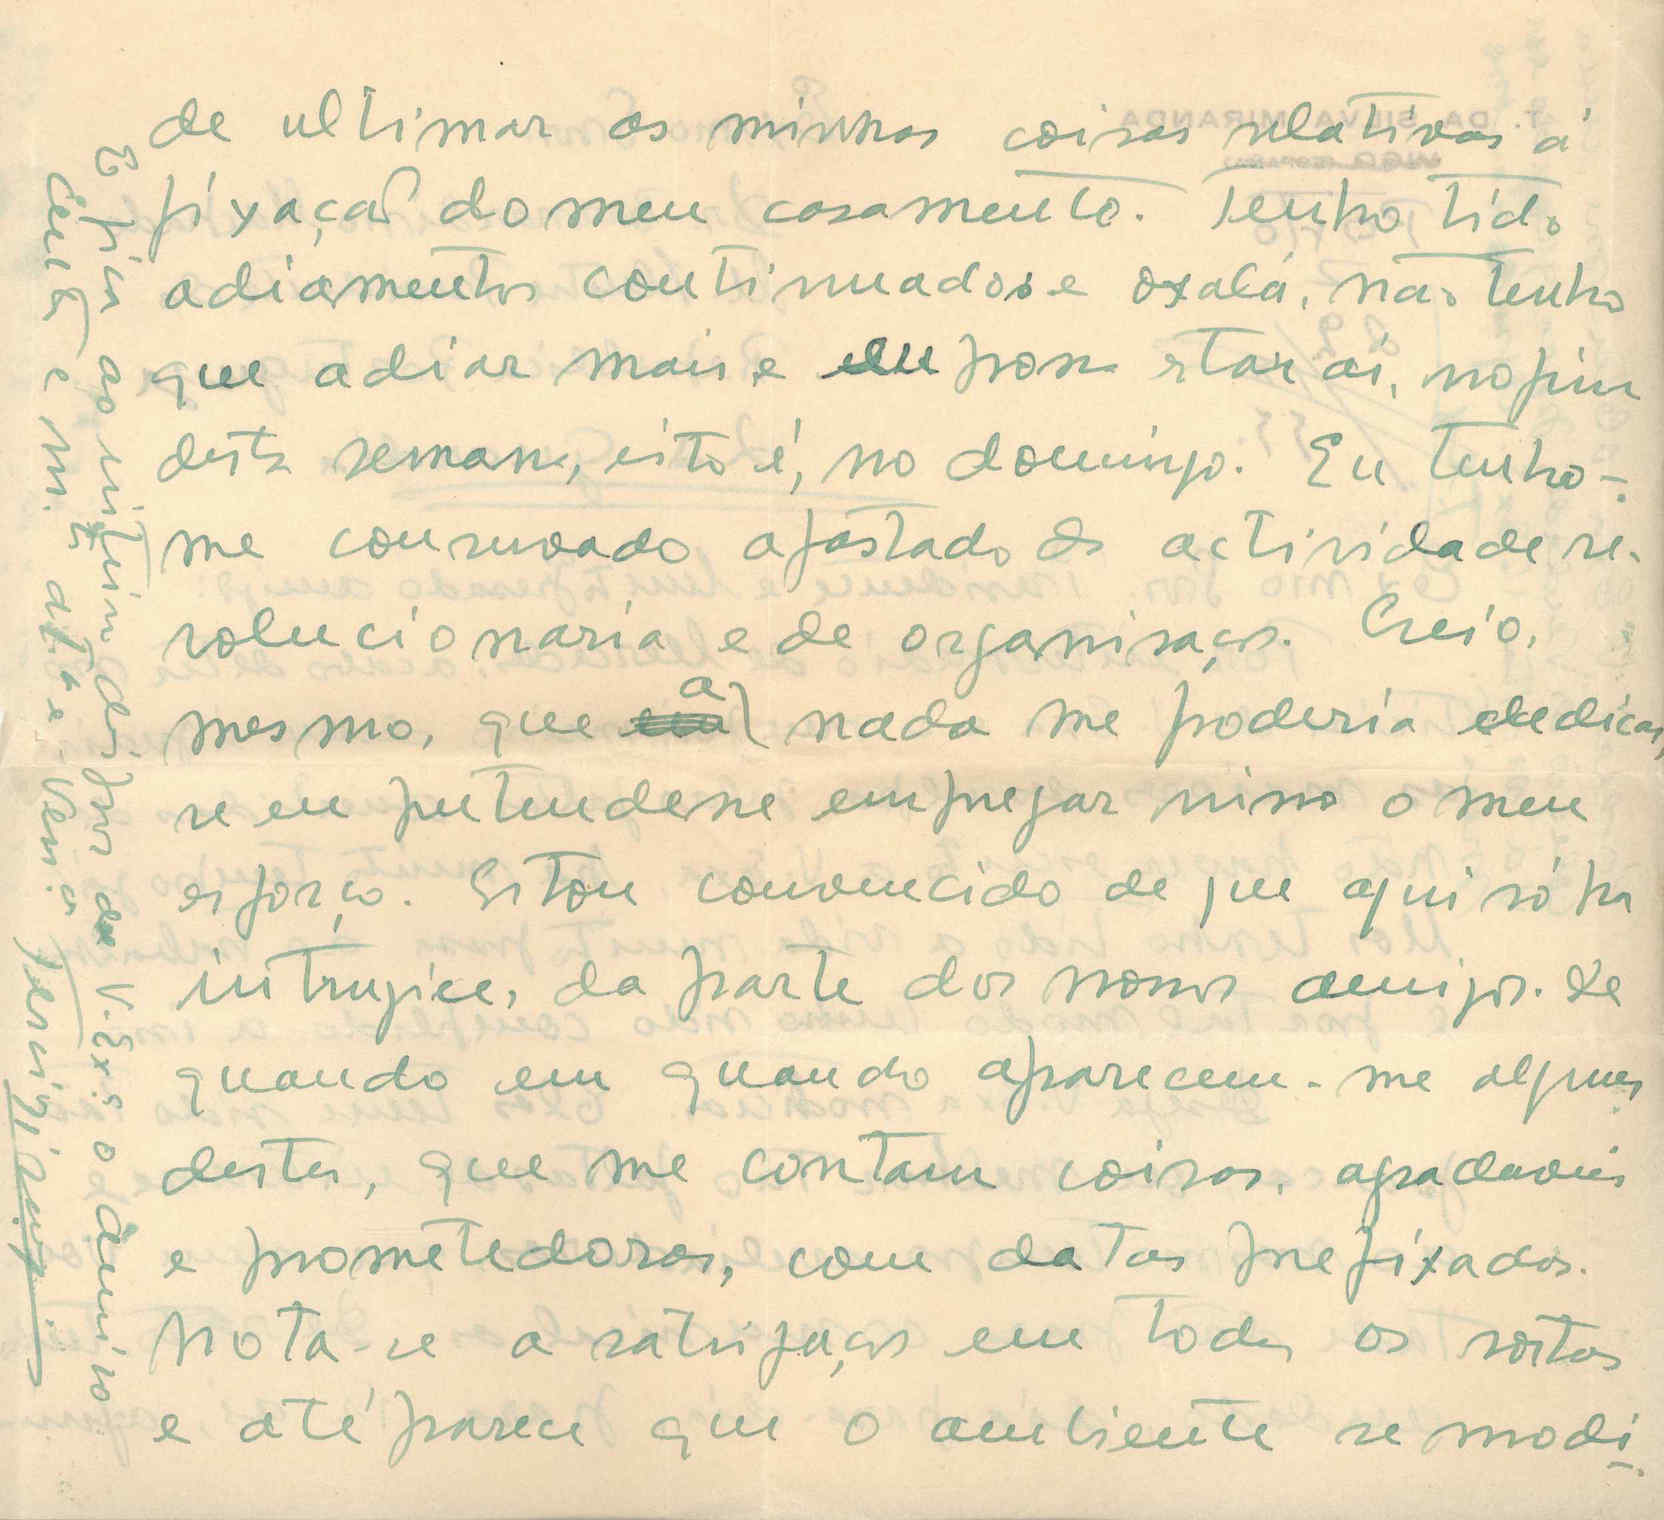 de ultimar as minhas coisas relativas á
fixação do meu casamento. Tenho tido
adiamentos continuados e oxalá, não tenha
que adiar mais e eu possa estar aí, no fim
desta semana, isto é, no domingo. Eu tenho-
me conservado afastado da actividade re-
volucionaria e de organisação. Creio,
mesmo, que a nada me poderia dedicar,
se eu pretendesse empregar nisso o meu
esforço. Estou convencido de que aqui só ha
intrugice, da parte dos nossos amigos. De
quando em quando aparecem-me alguns
destes, que me contam coisas, agradaveis
e prometedoras, com datas prefixadas.
Nota-se a satisfação em todos os rostos
e até parece que o ambiente se modi-
E fica ao inteiro dispor de V. Exª o amigo